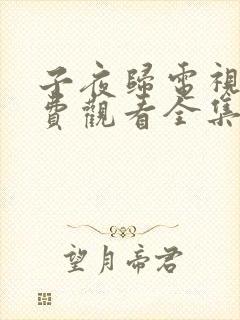 子夜歸電視
費觀看全集
望月帝君